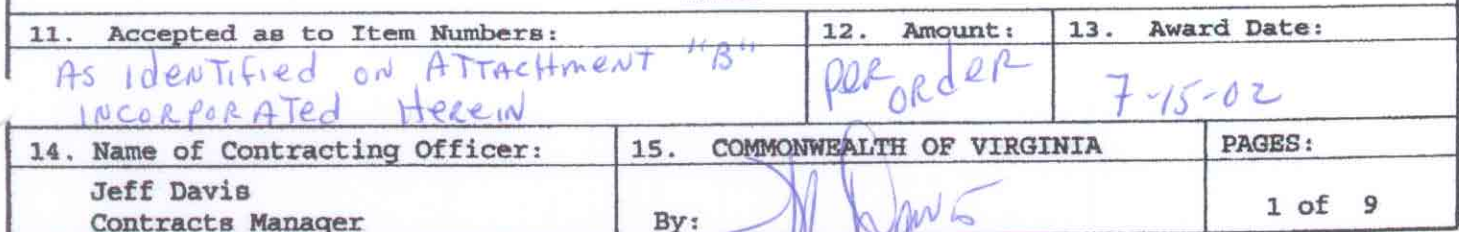 11. Accepted as to Item Numbers:
12. Amount:
13. Award Date:
As Identified on Attachment "B"
Incorporated Herein
per
order
7-15-02
14. Name of Contracting Officer:
Jeff Davis
Contracts Manager
15. COMMONWEALTH OF VIRGINIA
By: Jeff Davis
PAGES:
1 of 9